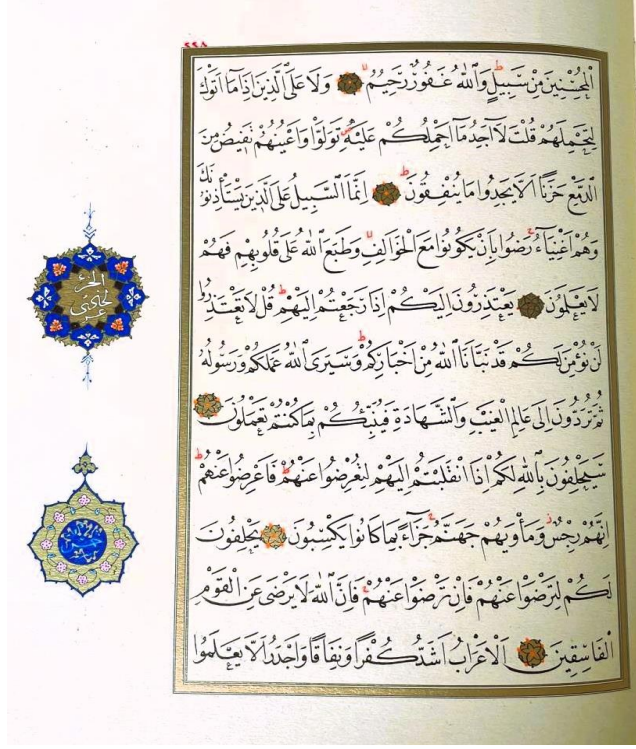 ٢٢٨
الْمُحْسِنِينَ مِنْ سَبِيلٍ وَاللّٰهُ غَفُورٌ رَحِيمٌ وَلَا عَلَى الَّذِينَ اِذَا مَا اَتَوْكَ
لِتَحْمِلَهُمْ قُلْتَ لَا اَجِدُ مَا اَحْمِلُكُمْ عَلَيْهِ تَوَلَّوْا وَاَعْيُنُهُمْ تَفِيضُ مِنَ
الدَّمْعِ حَزَنًا اَلَّا يَجِدُوا مَا يُنْفِقُونَ اِنَّمَا السَّبِيلُ عَلَى الَّذِينَ يَسْتَأْذِنُونَكَ
وَهُمْ اَغْنِيَاءُ رَضُوا بِاَنْ يَكُونُوا مَعَ الْخَوَالِفِ وَطَبَعَ اللّٰهُ عَلَى قُلُوبِهِمْ فَهُمْ
لَا يَعْلَمُونَ يَعْتَذِرُونَ اِلَيْكُمْ اِذَا رَجَعْتُمْ اِلَيْهِمْ قُلْ لَا تَعْتَذِرُوا
لَنْ نُؤْمِنَ لَكُمْ قَدْ نَبَّاَنَا اللّٰهُ مِنْ اَخْبَارِكُمْ وَسَيَرَى اللّٰهُ عَمَلَكُمْ وَرَسُولُهُ
ثُمَّ تُرَدُّونَ اِلَى عَالِمِ الْغَيْبِ وَالشَّهَادَةِ فَيُنَبِّئُكُمْ بِمَا كُنْتُمْ تَعْمَلُونَ
سَيَحْلِفُونَ بِاللّٰهِ لَكُمْ اِذَا انْقَلَبْتُمْ اِلَيْهِمْ لِتُعْرِضُوا عَنْهُمْ فَاَعْرِضُوا عَنْهُمْ
اِنَّهُمْ رِجْسٌ وَمَأْوٰيهُمْ جَهَنَّمُ جَزَاءً بِمَا كَانُوا يَكْسِبُونَ يَحْلِفُونَ
لَكُمْ لِتَرْضَوْا عَنْهُمْ فَاِنْ تَرْضَوْا عَنْهُمْ فَاِنَّ اللّٰهَ لَا يَرْضَى عَنِ الْقَوْمِ
الْفَاسِقِينَ اَلْاَعْرَابُ اَشَدُّ كُفْرًا وَنِفَاقًا وَاَجْدَرُ اَلَّا يَعْلَمُوا
الجزء
الحادى
عشر